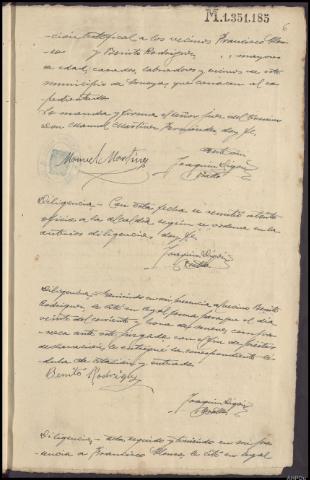 M.1.351.185
6
ción testifical a los vecinos Francisco
y Benito Rodriguez, mayores
de edad, casados, labradores y vecinos de este
municipio de que conocen al
Lo manda y firma el señor Juez del
Don Manuel Martinez Fernández, doy fe.
Manuel Martinez
Ante mi
Joaquin
Diligencia - Con esta fecha se remite atento
oficio a la alcaldia segun se ordena en la
anterior diligencia, doy fe.
Joaquin
Diligencia - Teniendo en mi presencia al vecino Benito
Rodriguez le cité en legal forma para que el dia
veinte del corriente y hora de compa-
rezca ante este juzgado con el fin de prestar
declaración, le entregué la correspondiente cé-
dula de citación y enterado.
Benito Rodriguez
Joaquin
Diligencia - Acto seguido y teniendo en mi pre-
sencia a Francisco le cité en legal